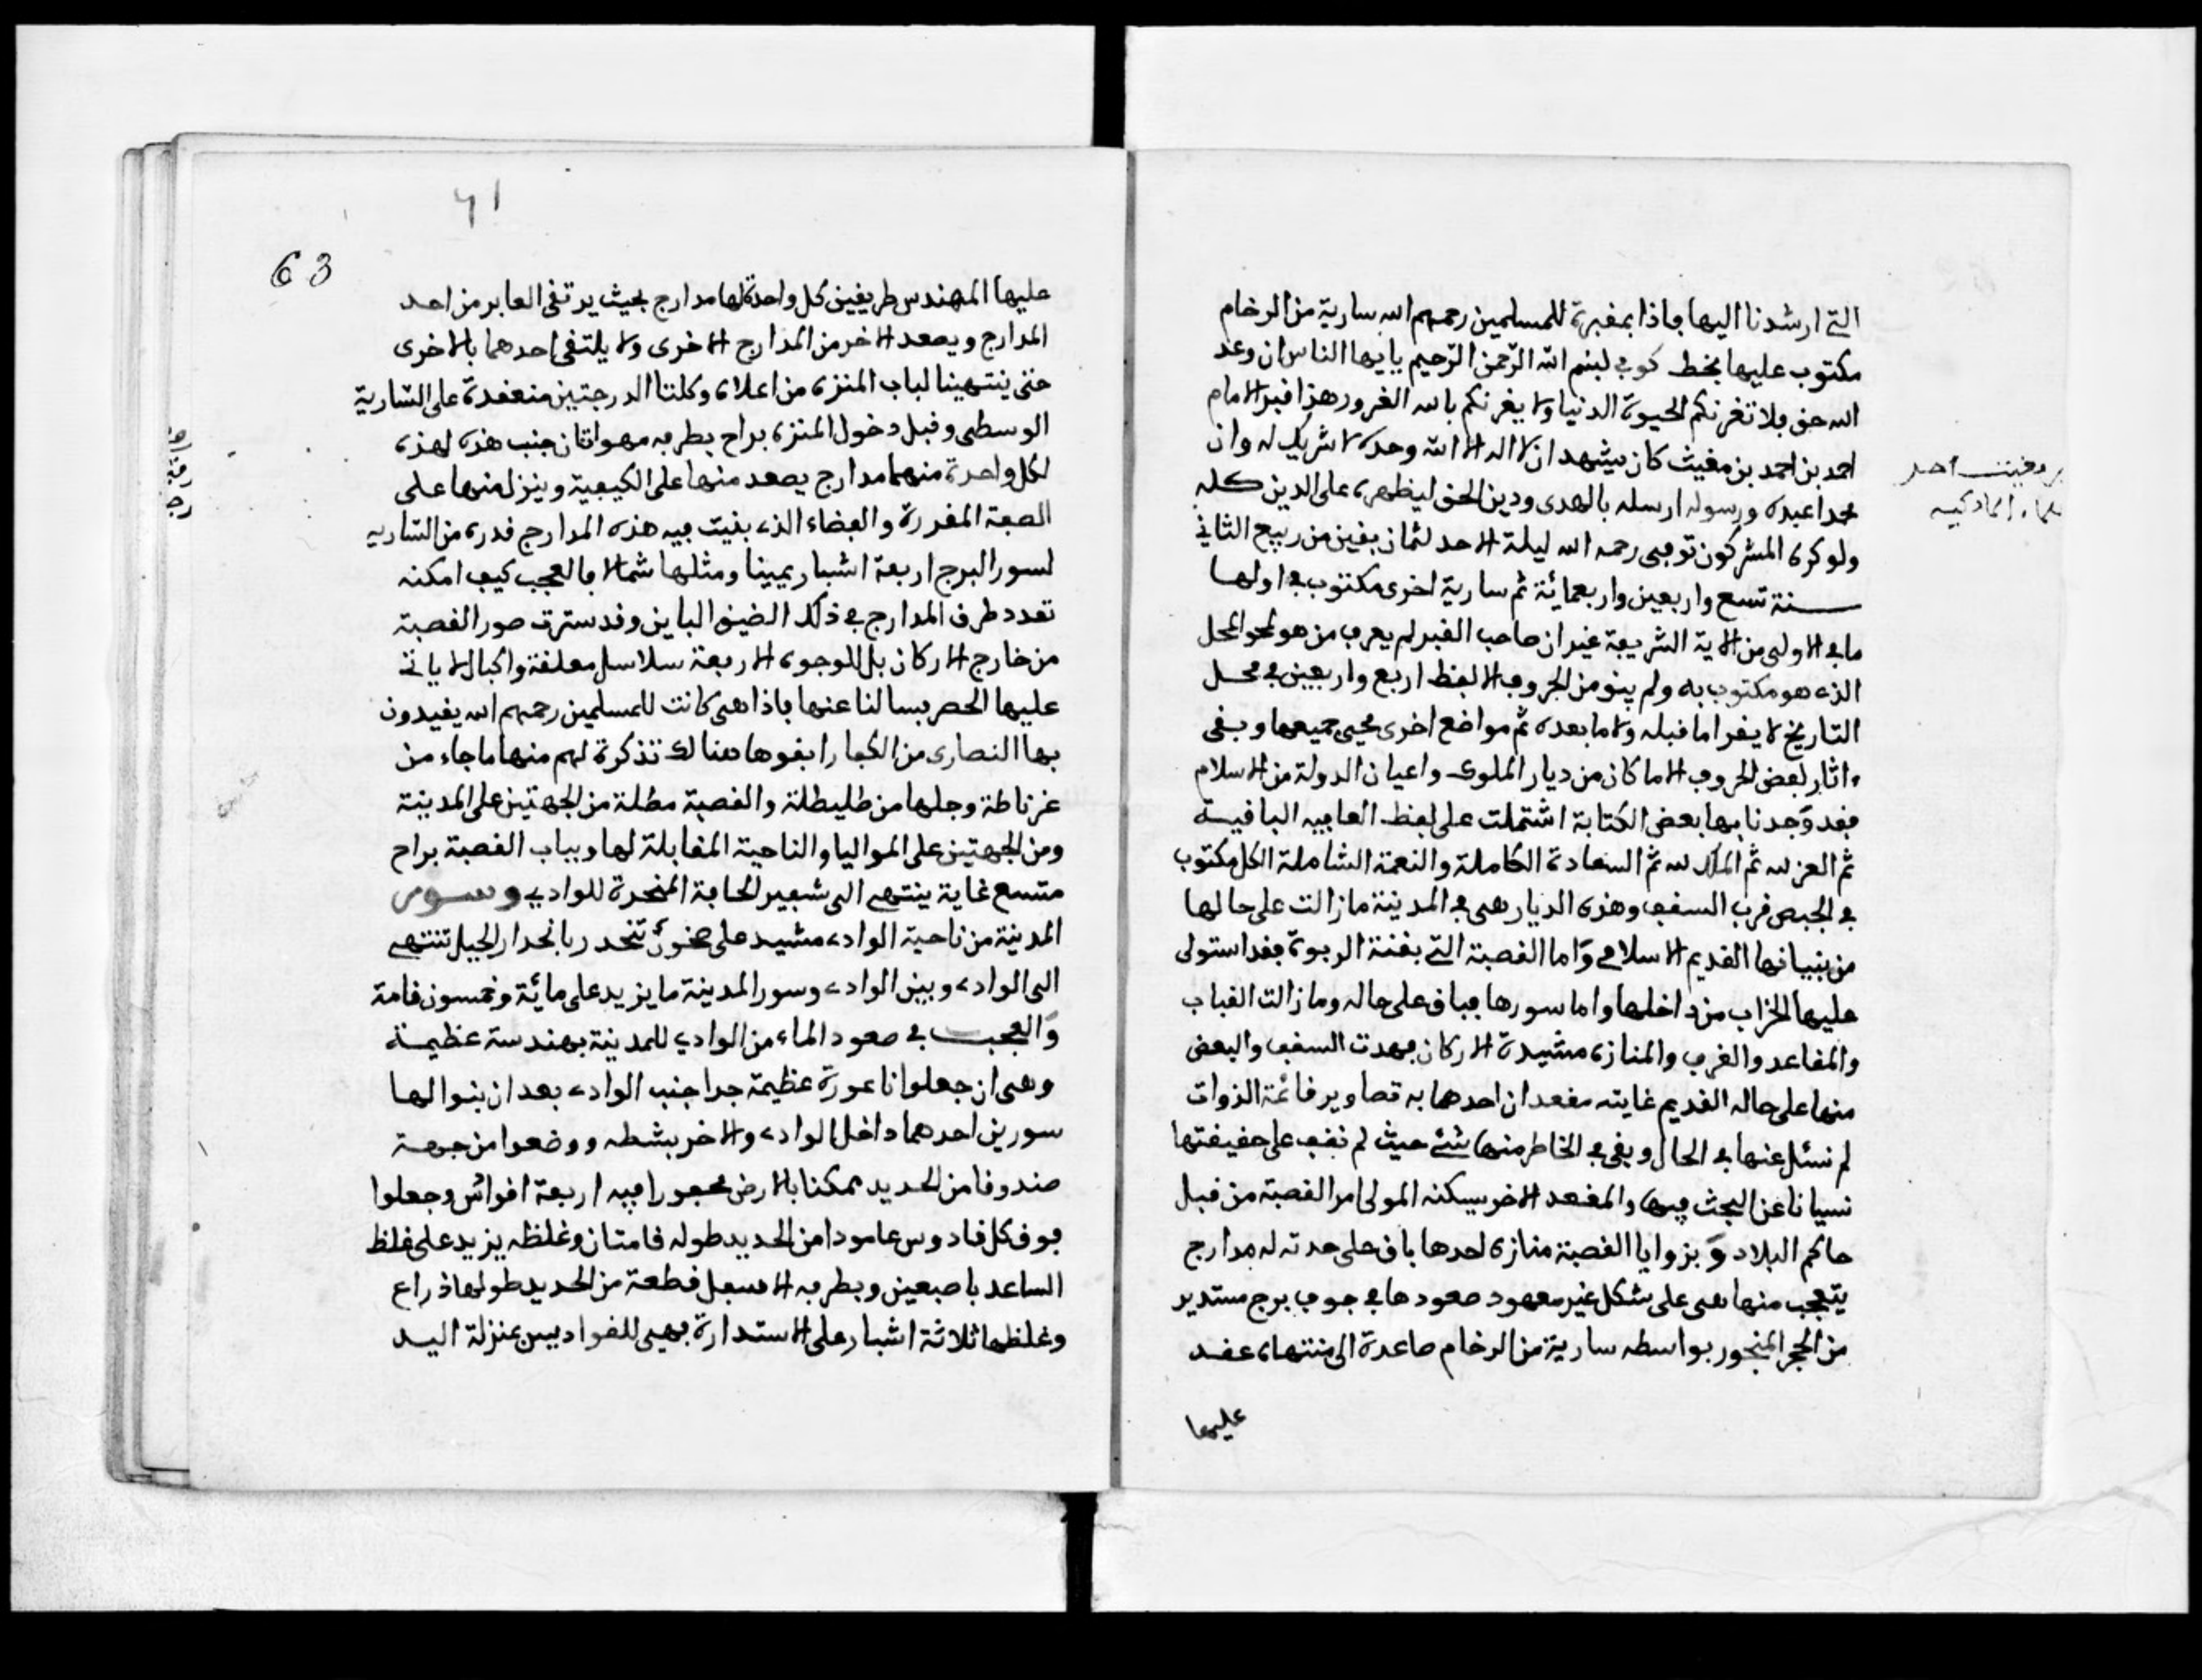 التي ارشدنا اليها فاذا بمقبرة للمسلمين رحمهم الله سارية من الرخام
مكتوب عليها بخط كوفي بسم الله الرّحمن الرّحيم يايها الناس ان وعد
الله حق فلا تغرنكم الحيوة الدنيا ولا يغرنكم بالله الغرور هذا قبر الامام
احمد بن احمد بن مغيث كان يشهد ان لا اله الا الله وحده لا شريك له وان
محمدا عبده ورسوله ارسله بالهدى ودين الحق ليظهره على الدين كله
ولو كره المشركون توفي رحمه الله ليلة الاحد لثمان بقين من ربيع الثاني
سنة تسع واربعين واربعمائة ثم سارية اخرى مكتوب في اولها
ما في الاولى من الاية الشريفة غير ان صاحب القبر لم يعرف من هو لمحو المحل
الذي هو مكتوب به ولم يبق من الحروف الا لفظ اربع واربعين في محل
التاريخ لا يقرا ما قبله ولا ما بعده ثم مواضع اخرى محيى جميعها وبقى
ءاثار بعض الحروف الا ما كان من ديار الملوك واعيان الدولة من الاسلام
فقد وجدنا بها بعض الكتابة اشتملت على لفظ العافيه الباقية
ثم العز لله ثم الملك لله ثم السعادة الكاملة والنعمة الشاملة الكل مكتوب
في الجبص قرب السقف وهذه الديار هى في المدينة مازالت على حالها
من بنيانها القديم الاسلامي واما القصبة التي بقنة الربوة فقد استولى
عليها الخراب من داخلها واما سورها فباق على حاله ومازالت القباب
والمقاعد والغرف والمنازه مشيدة الاركان فهدت السقف والبعض
منها على حاله القديم غايته مقعدان احدهما به تصاوير قائمة الذوات
لم نسئل عنها في الحال وبقى في الخاطر منها شئ حيث لم نقف على حقيقتها
نسيانا عن البحث فيها والمقعد الاخر يسكنه المولى امر القصبة من قبل
حاكم البلاد وبزوايا القصبة منازه احدها باق على حدته له مدارج
يتعجب منها هى على شكل غير معهود صعودها في جوف برج مستدير
من الحجر المنجور بواسطه سارية من الرخام صاعدة الى منتهاه عقد
عليها
61
63
عليها المهندس طريقين كل واحدة لها مدارج بحيث يرتقى العابر من احد
المدارج ويصعد الاخر من المدارج الاخرى ولا يلتقى احدهما بالاخرى
حتى ينتهينا لباب المنزه من اعلاه وكلتا الدرجتين منعقدة على السّارية
الوسطى وقبل دخول المنزه براح بطرفه مهواتان جنب هذه لهذه
لكل واحدة منهما مدارج يصعد منها على الكيفية وينزل منها على
الصفة المقررة والفضاء الذي بنيت فيه هذه المدارج قدره من الساريه
لسور البرج اربعة اشبار يمينا ومثلها شمالا فالعجب كيف امكنه
تعدد طرف المدارج في ذلك الضيق الباين وقد سترت صور القصبة
من خارج الاركان بل الوجوه الاربعة سلاسل معلقة واكبال لا ياتي
عليها الحصر فسالنا عنها فاذا هى كانت للمسلمين رحمهم الله يقيدون
بها النصارى من الكبار ابقوها هنالك تذكرة لهم منها ما جاء من
غرناطة وجلها من طليطلة والقصبة مطلة من الجهتين على المدينة
ومن الجهتين على المواليا والناحية المقابلة لها وبباب القصبة براح
متسع غاية ينتهي الى شفير الحافة المنحدرة للوادي وسور
المدينة من ناحية الوادي مشيد على صخور تنحدر بانحدار الجبل تنتهي
الى الوادي وبين الوادي وسور المدينة ما يزيد على مائة وخمسون قامة
والعجب في صعود الماء من الوادي للمدينة بهندسة عظيمة
وهى ان جعلوا ناعورة عظيمة جدا جنب الوادي بعد ان بنوا لها
سورين احدهما داخل الوادي والاخر بشطه ووضعوا من جهة
صندوقا من الحديد ممكنا بالارض محفورا فيه اربعة اقوائس وجعلوا
فوق كل قادوس عامودا من الحديد طوله قامتان وغلظه يزيد على غلظ
الساعد باصبعين وبطرفه الاسفل قطعة من الحديد طولها ذراع
وغلظها ثلاثة اشبار على الاستدارة فهى للقواديس بمنزلة اليد